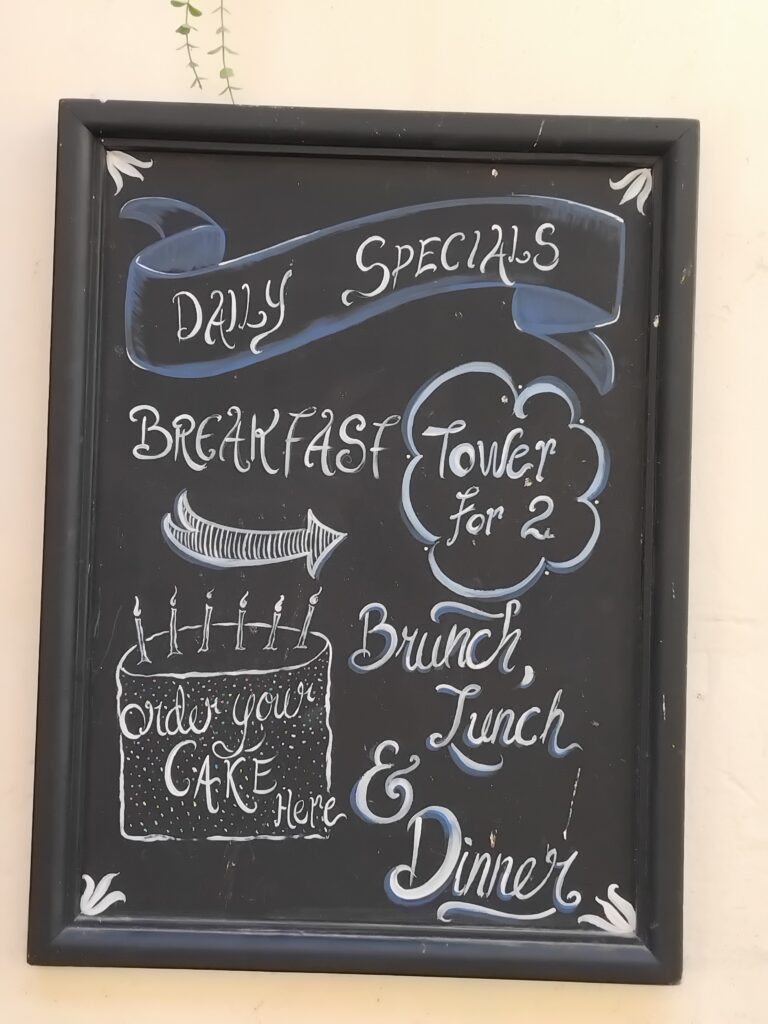 DAILY SPECIALS
BREAKFAST
Tower
For 2
Brunch,
Lunch
&
Dinner
Order your
CAKE
Here